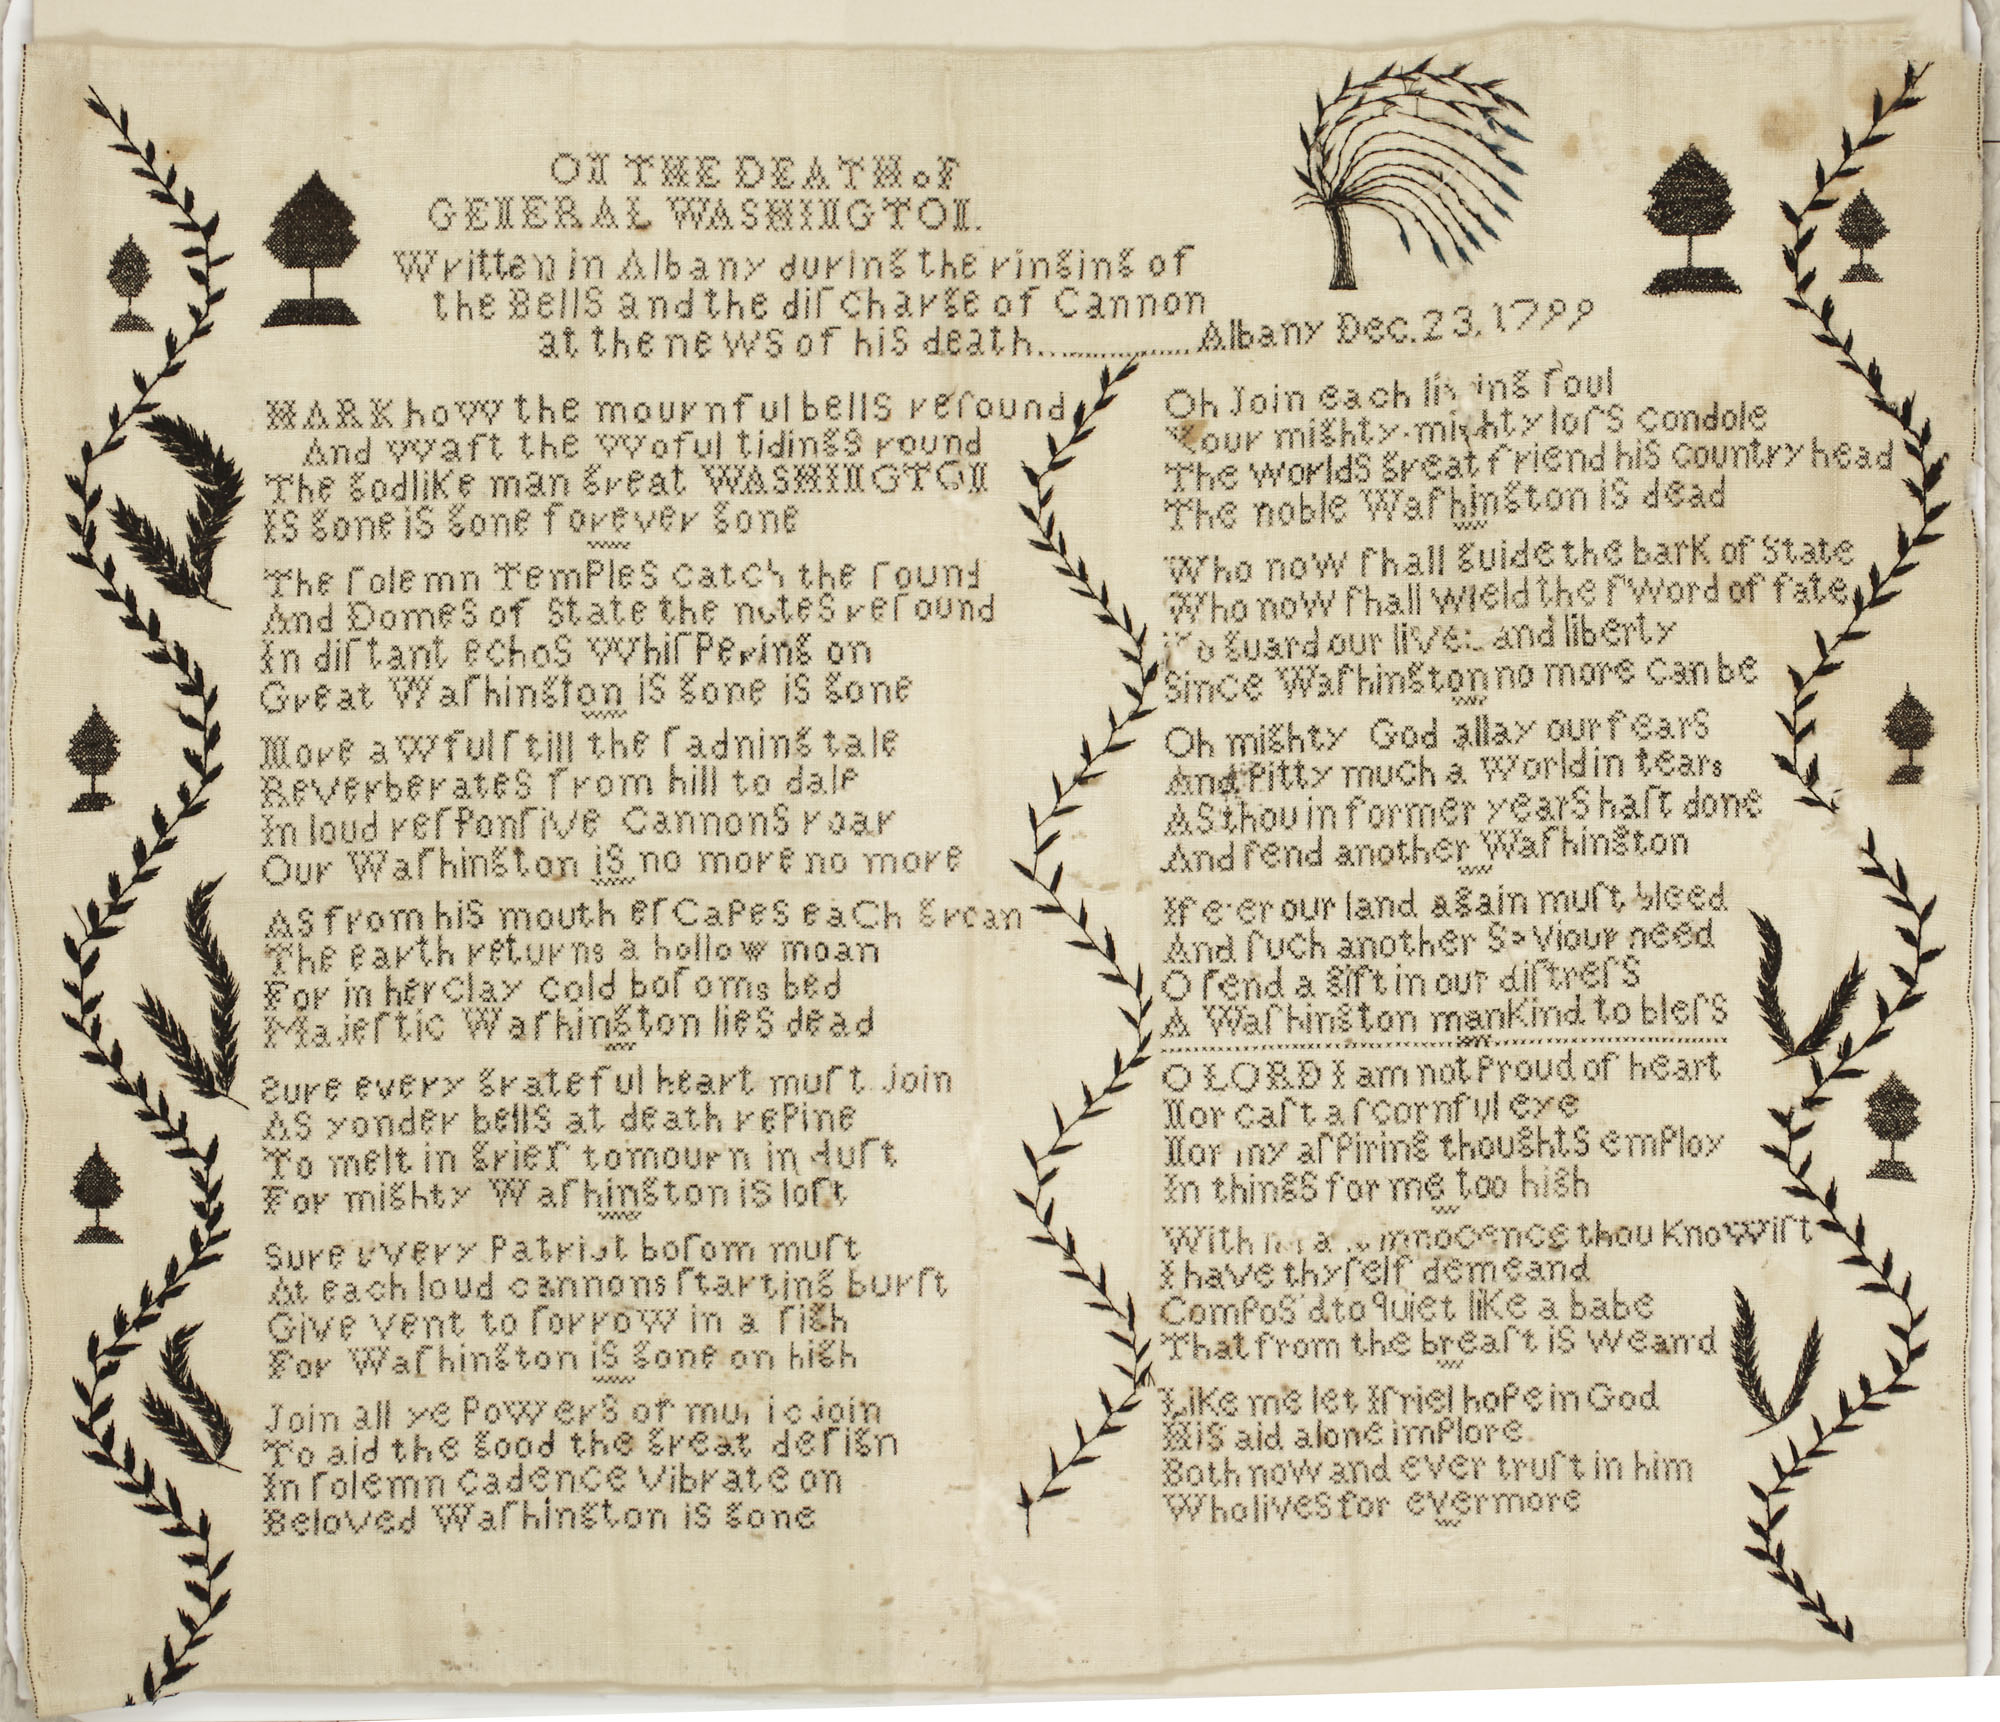 ON THE DEATH oF
GENERAL WASHINGTON.
Written in Albany during the ringing of
the Bells and the diſcharge of Cannon
at the news of his death................Albany Dec. 23, 1799
HARK how the mournful bells reſound
And waft the woful tidings round
The godlike man great WASHINGTON
Is gone is gone forever gone
The ſolemn Temples catch the ſound
And Domes of State the notes reſound
In diſtant echos Whiſpering on
Great Waſhington is gone is gone
More awful ſtill the ſadning tale
Reverberates from hill to dale
In loud reſponſive Cannons roar
Our Waſhington is no more no more
As from his mouth eſcapes each groan
The earth returns a hollow moan
For in her clay cold boſoms bed
Majeſtic Waſhington lies dead
Sure every grateful heart muſt join
As yonder bells at death repine
To melt in grief to mourn in duſt
For mighty Waſhington is loſt
Sure every Patriot boſom muſt
At each loud cannons ſtarting burſt
Give vent to ſorrow in a ſigh
For Waſhington is gone on high
Join all ye Powers of muſic join
To aid the good the great deſign
In ſolemn cadence vibrate on
Beloved Waſhington is gone
Oh Join each living ſoul
Your mighty mighty loſs condole
The worlds great friend his country head
The noble Waſhington is dead
Who now ſhall guide the bark of State
Who now ſhall wield the ſword of fate
To guard our lives and liberty
Since Waſhington no more can be
Oh mighty God allay our fears
And Pitty much a World in tears
As thou in former years haſt done
And ſend another Waſhington
If e'er our land again muſt bleed
And ſuch another Saviour need
O ſend a gift in our diſtreſs
A Waſhington mankind to bleſs
O LORD I am not Proud of heart
Nor caſt a ſcornful eye
Nor my aſpiring thoughts employ
In things for me too high
With innocence thou knowiſt
I have thyſelf demeand
Compos'd to quiet like a babe
That from the breaſt is weand
Like me let Iſriel hope in God
His aid alone implore
Both now and ever truſt in him
Who lives for evermore